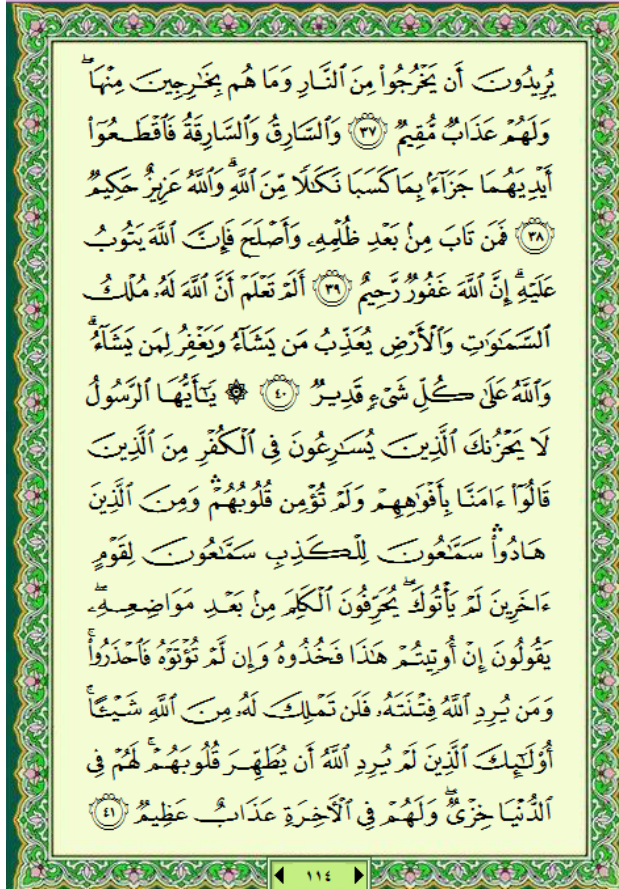 يُرِيدُونَ أَن يَخْرُجُوا۟ مِنَ ٱلنَّارِ وَمَا هُم بِخَٰرِجِينَ مِنْهَا ۖ
وَلَهُمْ عَذَابٌ مُّقِيمٌ ٣٧ وَٱلسَّارِقُ وَٱلسَّارِقَةُ فَٱقْطَعُوٓا۟
أَيْدِيَهُمَا جَزَآءًۢ بِمَا كَسَبَا نَكَٰلًا مِّنَ ٱللَّهِ ۗ وَٱللَّهُ عَزِيزٌ حَكِيمٌ
٣٨ فَمَن تَابَ مِنۢ بَعْدِ ظُلْمِهِۦ وَأَصْلَحَ فَإِنَّ ٱللَّهَ يَتُوبُ
عَلَيْهِ ۗ إِنَّ ٱللَّهَ غَفُورٌ رَّحِيمٌ ٣٩ أَلَمْ تَعْلَمْ أَنَّ ٱللَّهَ لَهُۥ مُلْكُ
ٱلسَّمَٰوَٰتِ وَٱلْأَرْضِ يُعَذِّبُ مَن يَشَآءُ وَيَغْفِرُ لِمَن يَشَآءُ ۗ
وَٱللَّهُ عَلَىٰ كُلِّ شَىْءٍ قَدِيرٌ ٤٠ ۞ يَٰٓأَيُّهَا ٱلرَّسُولُ
لَا يَحْزُنكَ ٱلَّذِينَ يُسَٰرِعُونَ فِى ٱلْكُفْرِ مِنَ ٱلَّذِينَ
قَالُوٓا۟ ءَامَنَّا بِأَفْوَٰهِهِمْ وَلَمْ تُؤْمِن قُلُوبُهُمْ ۛ وَمِنَ ٱلَّذِينَ
هَادُوا۟ ۛ سَمَّٰعُونَ لِلْكَذِبِ سَمَّٰعُونَ لِقَوْمٍ
ءَاخَرِينَ لَمْ يَأْتُوكَ ۖ يُحَرِّفُونَ ٱلْكَلِمَ مِنۢ بَعْدِ مَوَاضِعِهِۦ ۖ
يَقُولُونَ إِنْ أُوتِيتُمْ هَٰذَا فَخُذُوهُ وَإِن لَّمْ تُؤْتَوْهُ فَٱحْذَرُوا۟ ۚ
وَمَن يُرِدِ ٱللَّهُ فِتْنَتَهُۥ فَلَن تَمْلِكَ لَهُۥ مِنَ ٱللَّهِ شَيْـًٔا ۚ
أُو۟لَٰٓئِكَ ٱلَّذِينَ لَمْ يُرِدِ ٱللَّهُ أَن يُطَهِّرَ قُلُوبَهُمْ ۚ لَهُمْ فِى
ٱلدُّنْيَا خِزْىٌ ۖ وَلَهُمْ فِى ٱلْءَاخِرَةِ عَذَابٌ عَظِيمٌ ٤١
١١٤